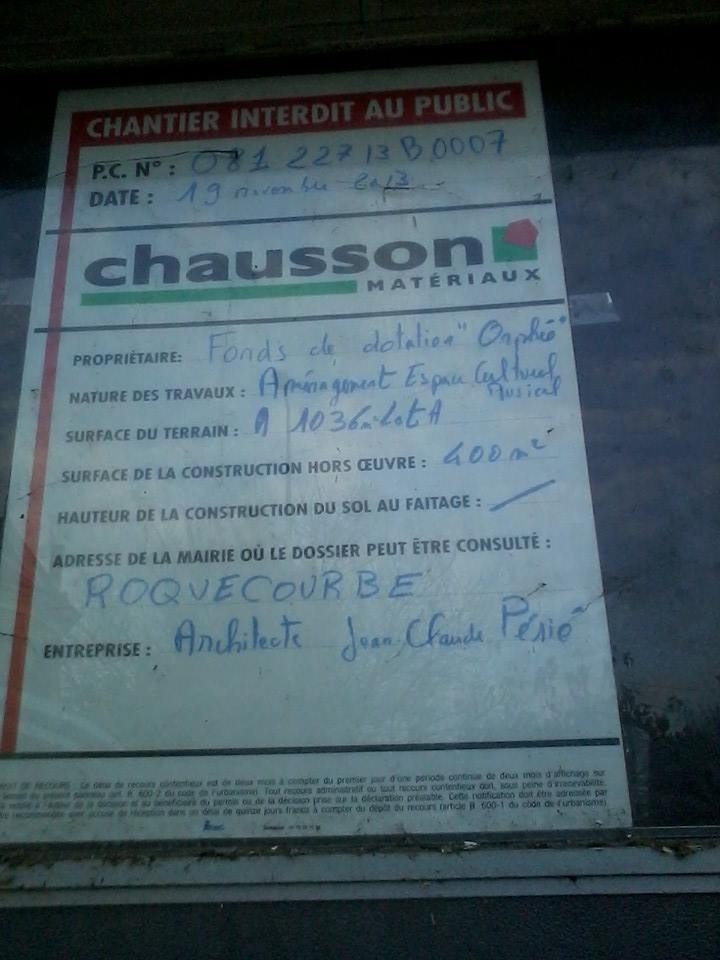 CHANTIER INTERDIT AU PUBLIC
P.C. N° : 081 227 13 B0007
DATE : 19 novembre 2013
chausson
MATÉRIAUX
PROPRIÉTAIRE: Fonds de dotation "Orphée"
NATURE DES TRAVAUX : Aménagement Espace Culturel
Musical
SURFACE DU TERRAIN : A 1036m² Lot A
SURFACE DE LA CONSTRUCTION HORS ŒUVRE : 400 m²
HAUTEUR DE LA CONSTRUCTION DU SOL AU FAITAGE :
ADRESSE DE LA MAIRIE OÙ LE DOSSIER PEUT ÊTRE CONSULTÉ :
ROQUECOURBE
ENTREPRISE : Architecte Jean Claude Périé
DROIT DE RECOURS : Le délai de recours contentieux est de deux mois à compter du premier jour d'une période continue de deux mois d'affichage sur
le terrain du présent panneau (art. R. 600-2 du code de l'urbanisme). Tout recours administratif ou tout recours contentieux doit, sous peine d'irrecevabilité,
être notifié à l'auteur de la décision et au bénéficiaire du permis ou de la décision prise sur la déclaration préalable. Cette notification doit être adressée par
lettre recommandée avec accusé de réception dans un délai de quinze jours francs à compter du dépôt du recours (article R. 600-1 du code de l'urbanisme).